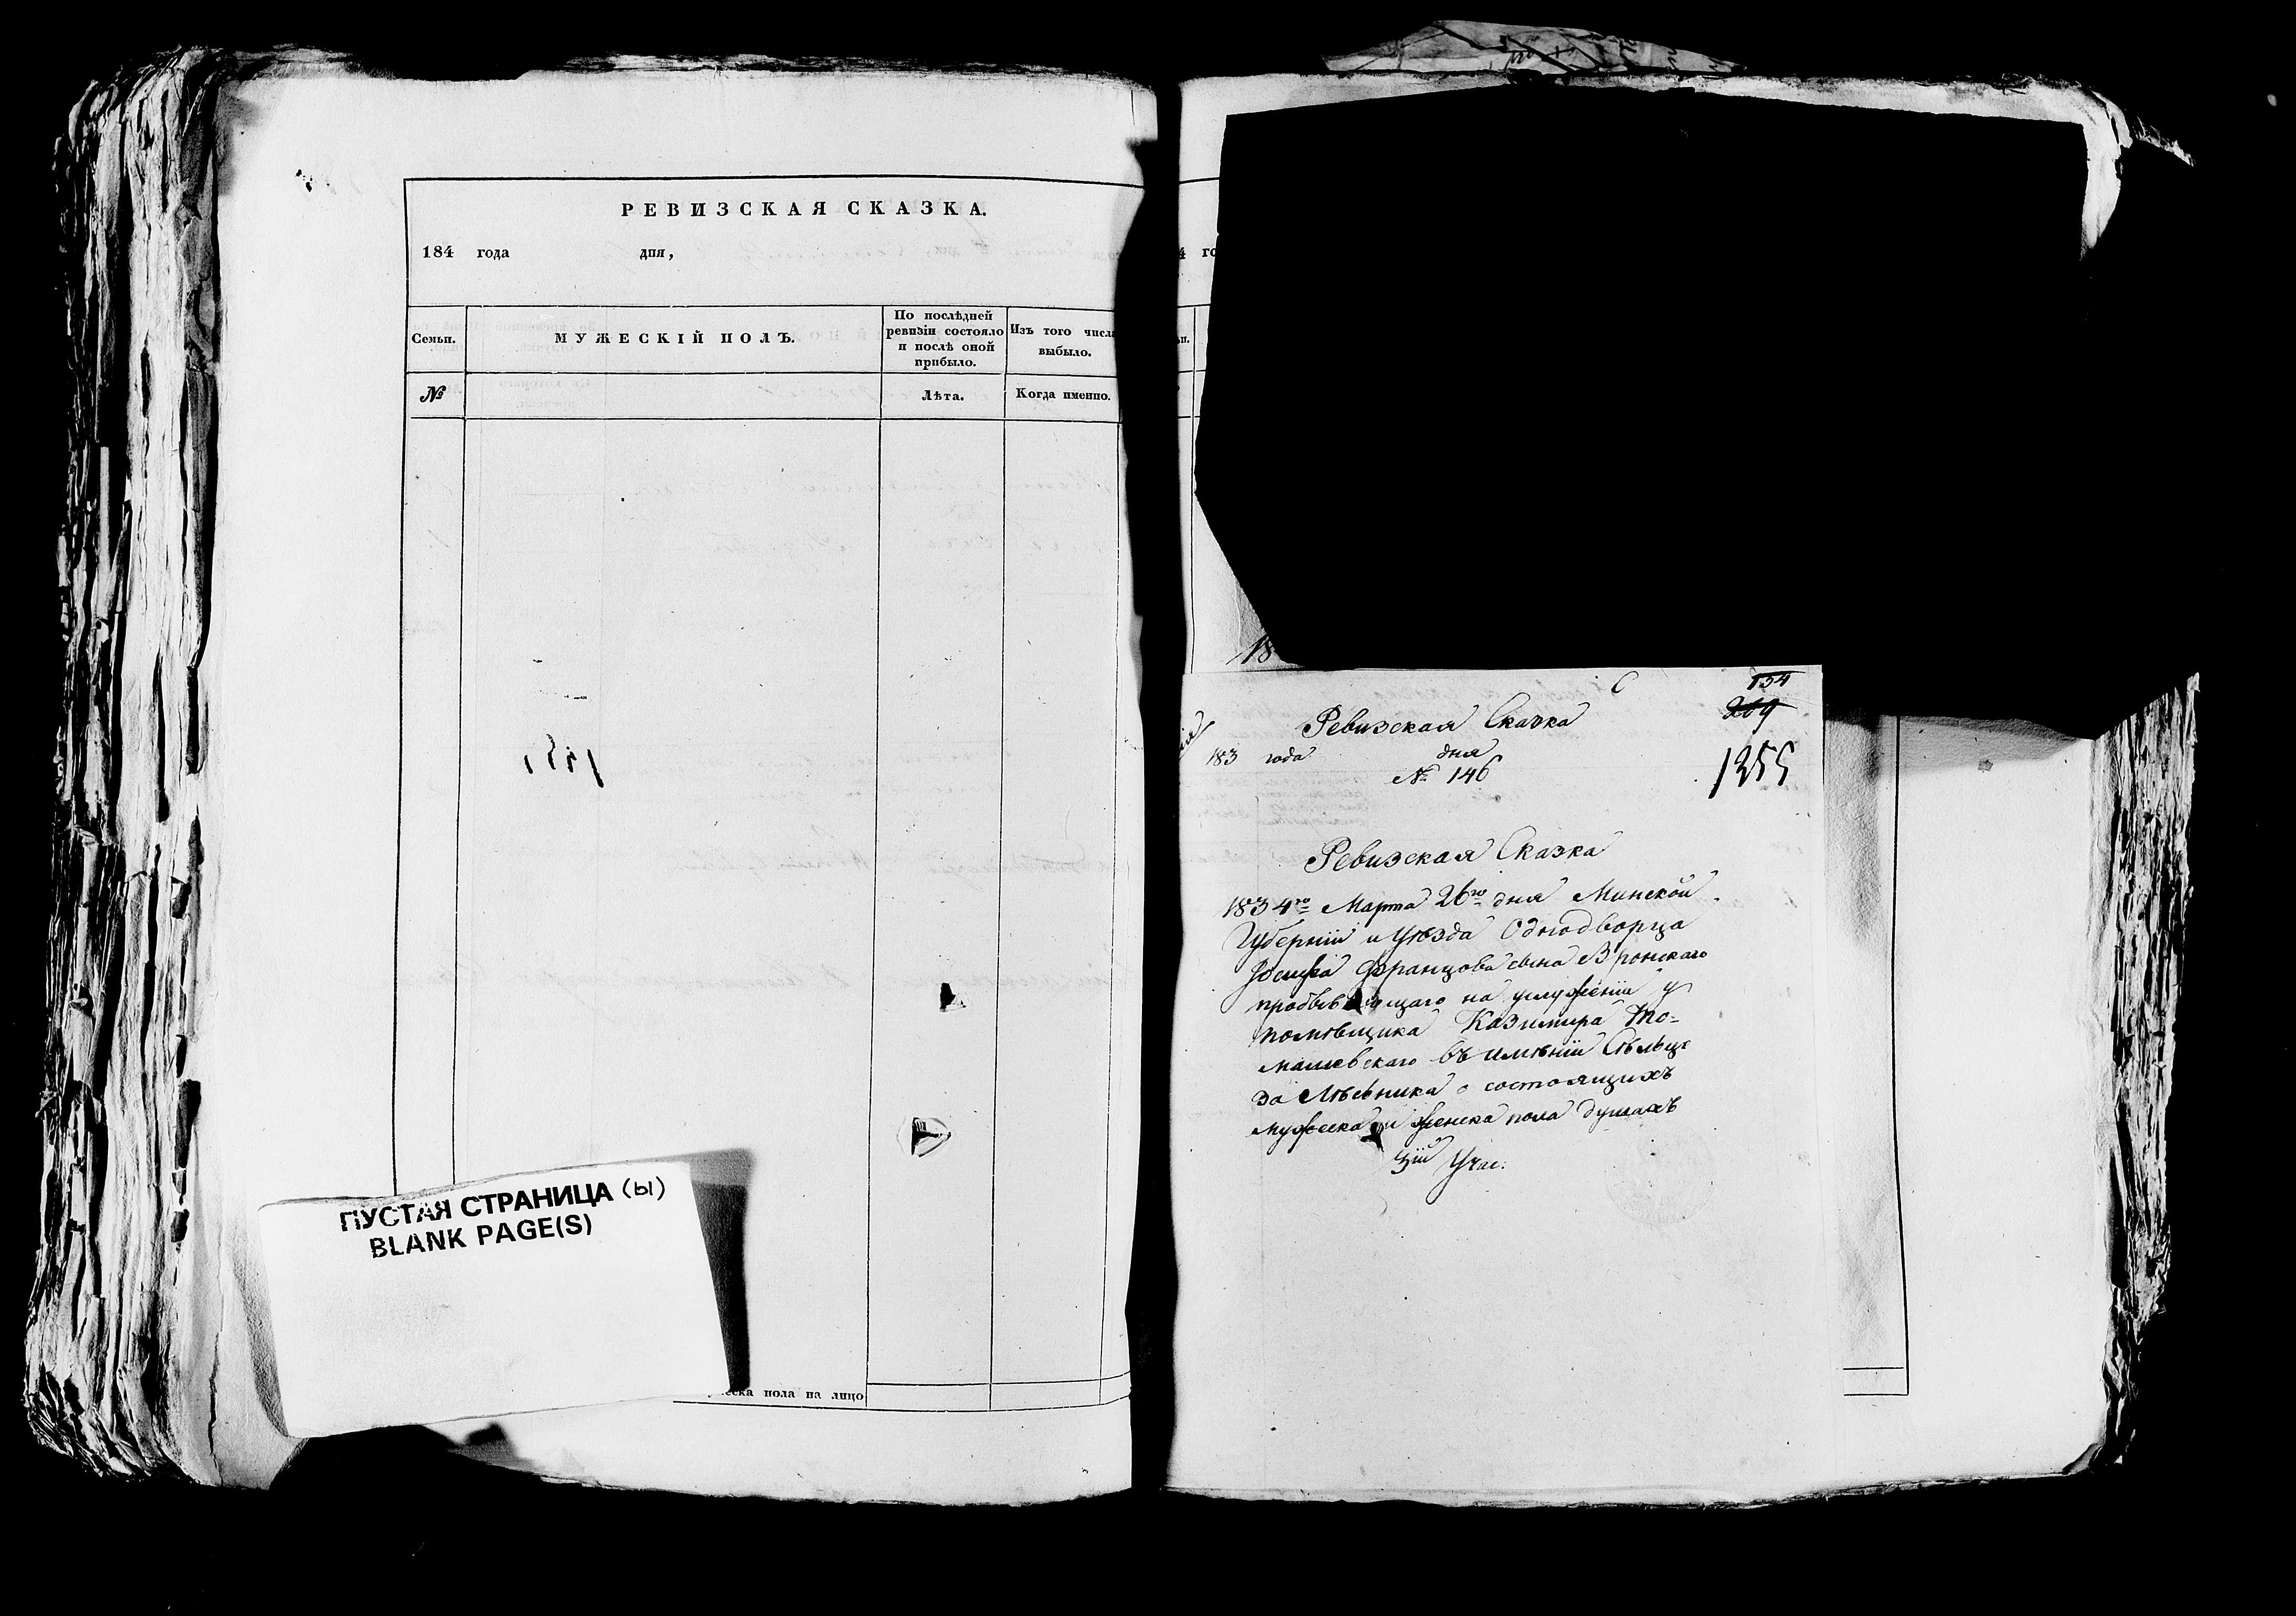 РЕВИЗСКАЯ СКАЗКА.
184 года дня,
Семьи.
МУЖЕСКІЙ ПОЛЪ.
По послѣдней
ревизіи состояло
и послѣ оной
прибыло.
Изъ того числа
выбыло.
№
Лѣта.
Когда именно.
ПУСТАЯ СТРАНИЦА (ы)
BLANK PAGE(S)
пола на лицо
4 го
18
154
269
1255
Ревизская Сказка
183 года дня
№ 146
Ревизская Сказка
1834го Марта 26го дня Минской
Губерніи и Уѣзда Однодворца
Іосифа Францова сына Вронскаго
пробывающаго на услуженіи у
помѣщика Казимира То-
машевскаго въ имѣніи Сѣльце
за Лѣсника о состоящихъ
мужеска и женска пола душахъ
3й Учас: